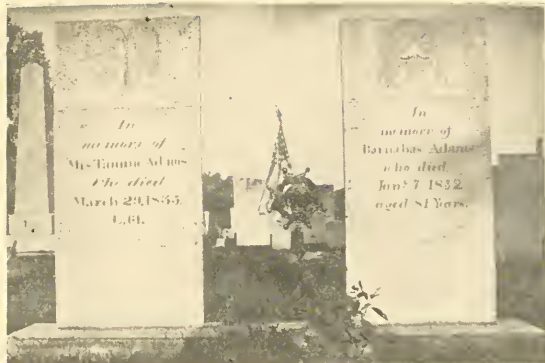 In
memory of
Mrs Adams
Who died
March 29,
In
memory of
Barnabas Adams
who died
7 1832
aged 81 Years.